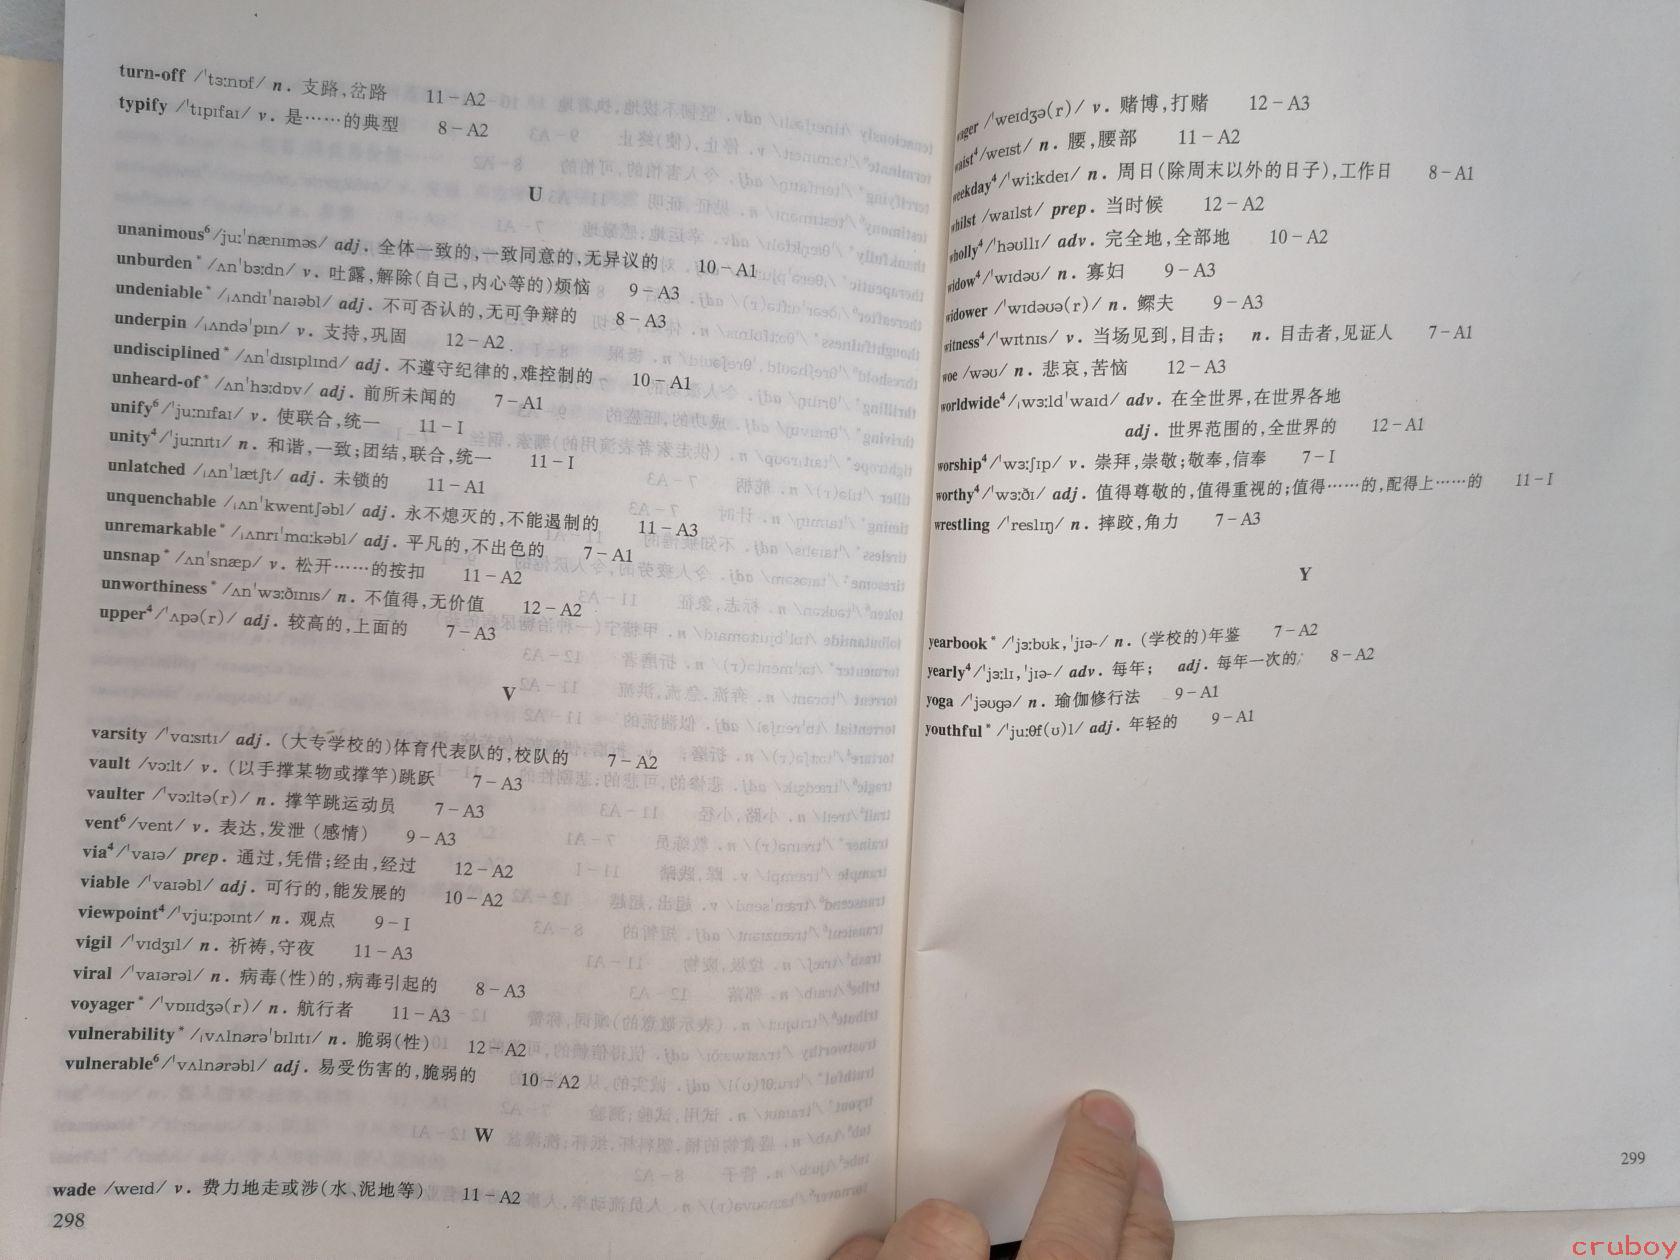 turn-off /ˈtɜːnɒf/ n. 支路,岔路 11-A2
typify /ˈtɪpɪfaɪ/ v. 是……的典型 8-A2
U
unanimous⁶/juːˈnænɪməs/ adj. 全体一致的,一致同意的,无异议的 10-A1
unburden* /ʌnˈbɜːdn/ v. 吐露,解除(自己,内心等的)烦恼 9-A3
undeniable* /ˌʌndɪˈnaɪəbl/ adj. 不可否认的,无可争辩的 8-A3
underpin /ˌʌndəˈpɪn/ v. 支持,巩固 12-A2
undisciplined* /ʌnˈdɪsɪplɪnd/ adj. 不遵守纪律的,难控制的 10-A1
unheard-of* /ʌnˈhɜːdɒv/ adj. 前所未闻的 7-A1
unify⁶/ˈjuːnɪfaɪ/ v. 使联合,统一 11-I
unity⁴/ˈjuːnɪtɪ/ n. 和谐,一致;团结,联合,统一 11-I
unlatched /ˌʌnˈlætʃt/ adj. 未锁的 11-A1
unquenchable /ˌʌnˈkwentʃəbl/ adj. 永不熄灭的,不能遏制的 11-A3
unremarkable* /ˌʌnrɪˈmɑːkəbl/ adj. 平凡的,不出色的 7-A1
unsnap* /ʌnˈsnæp/ v. 松开……的按扣 11-A2
unworthiness* /ʌnˈwɜːðɪnɪs/ n. 不值得,无价值 12-A2
upper⁴/ˈʌpə(r)/ adj. 较高的,上面的 7-A3
V
varsity /ˈvɑːsɪtɪ/ adj. (大专学校的)体育代表队的,校队的 7-A2
vault /vɔːlt/ v. (以手撑某物或撑竿)跳跃 7-A3
vaulter /ˈvɔːltə(r)/ n. 撑竿跳运动员 7-A3
vent⁶/vent/ v. 表达,发泄 (感情) 9-A3
via⁴/ˈvaɪə/ prep. 通过,凭借;经由,经过 12-A2
viable /ˈvaɪəbl/ adj. 可行的,能发展的 10-A2
viewpoint⁴/ˈvjuːpɔɪnt/ n. 观点 9-I
vigil /ˈvɪdʒɪl/ n. 祈祷,守夜 11-A3
viral /ˈvaɪərəl/ n. 病毒(性)的,病毒引起的 8-A3
voyager* /ˈvɒɪɪdʒə(r)/ n. 航行者 11-A3
vulnerability* /ˌvʌlnərəˈbɪlɪtɪ/ n. 脆弱(性) 12-A2
vulnerable⁶/ˈvʌlnərəbl/ adj. 易受伤害的,脆弱的 10-A2
W
wade /weɪd/ v. 费力地走或涉(水、泥地等) 11-A2
298
wager /ˈweɪdʒə(r)/ v. 赌博,打赌 12-A3
waist⁴/weɪst/ n. 腰,腰部 11-A2
weekday⁴/ˈwiːkdeɪ/ n. 周日(除周末以外的日子),工作日 8-A1
whilst /waɪlst/ prep. 当时候 12-A2
wholly⁴/ˈhəʊllɪ/ adv. 完全地,全部地 10-A2
widow⁴/ˈwɪdəʊ/ n. 寡妇 9-A3
widower /ˈwɪdəʊə(r)/ n. 鳏夫 9-A3
witness⁴/ˈwɪtnɪs/ v. 当场见到,目击; n. 目击者,见证人 7-A1
woe /wəʊ/ n. 悲哀,苦恼 12-A3
worldwide⁴/ˌwɜːldˈwaɪd/ adv. 在全世界,在世界各地
adj. 世界范围的,全世界的 12-A1
worship⁴/ˈwɜːʃɪp/ v. 崇拜,崇敬;敬奉,信奉 7-I
worthy⁴/ˈwɜːðɪ/ adj. 值得尊敬的,值得重视的;值得……的,配得上……的 11-I
wrestling /ˈreslɪŋ/ n. 摔跤,角力 7-A3
Y
yearbook* /ˈjɜːbʊk,ˈjɪə-/ n. (学校的)年鉴 7-A2
yearly⁴/ˈjɜːlɪ,ˈjɪə-/ adv. 每年; adj. 每年一次的 8-A2
yoga /ˈjəʊgə/ n. 瑜伽修行法 9-A1
youthful* /ˈjuːθf(ʊ)l/ adj. 年轻的 9-A1
299
cruboy